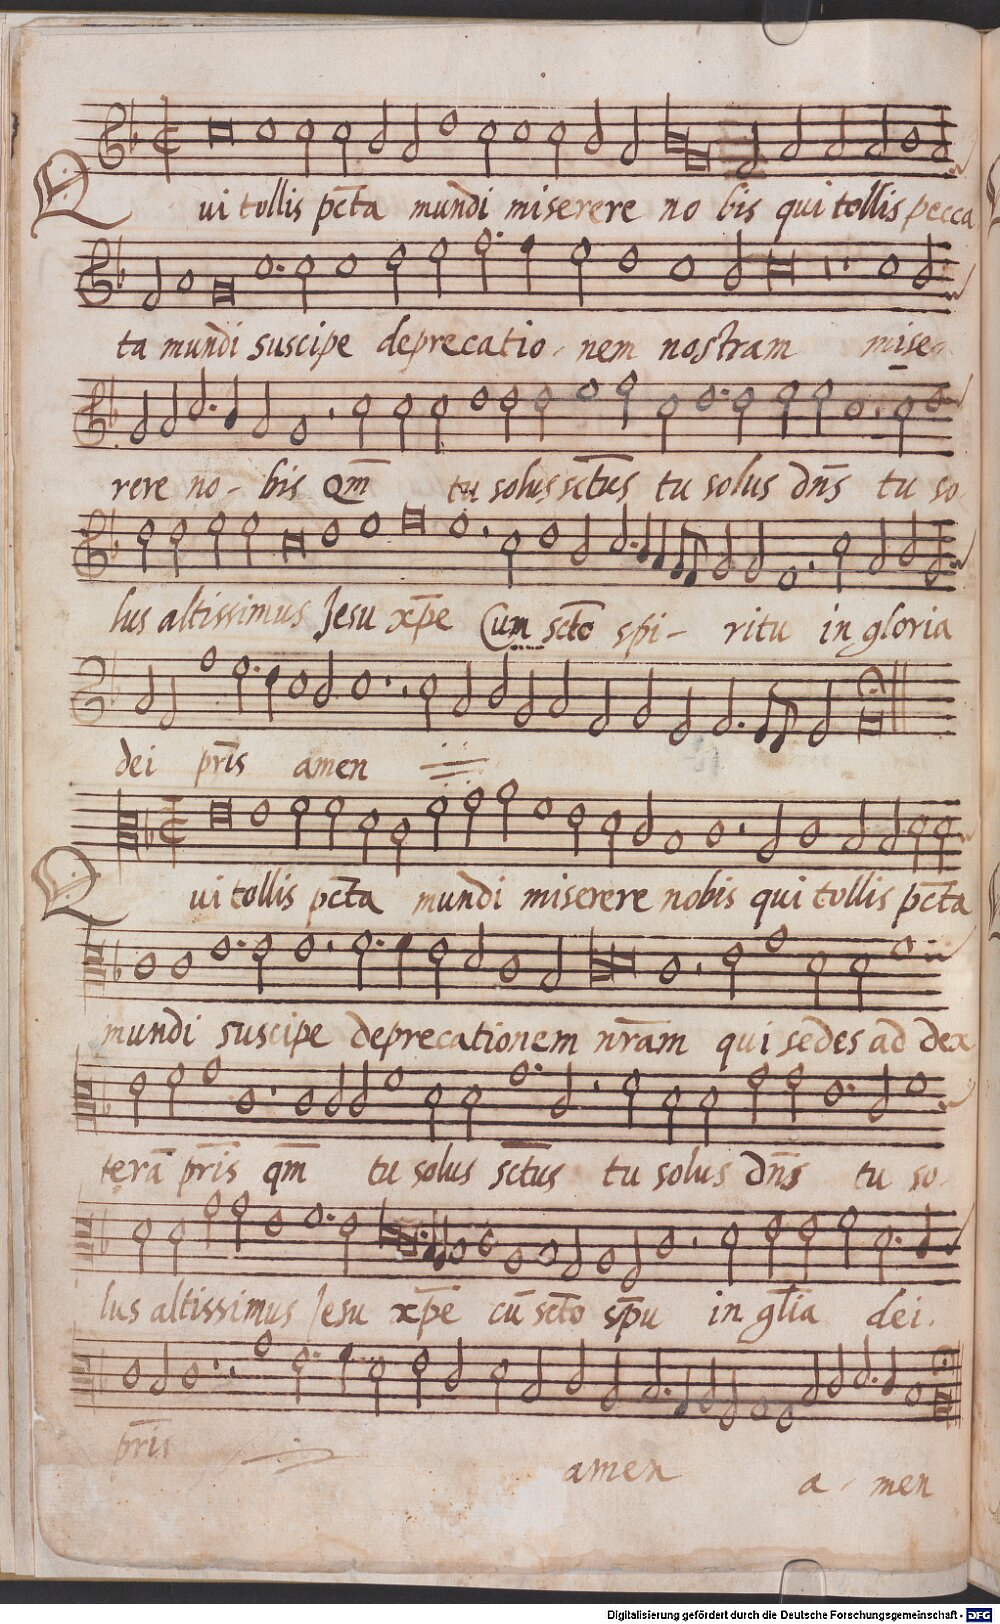 Qui tollis pc̄ta mundi miserere no bis qui tollis pecca
ta mundi suscipe deprecatio - nem nostram mise
rere no - bis Qm̄ tu solus sc̄tus tu solus dn̄s tu so
lus altissimus Jesu xp̄e Cum sc̄to spi - ritu in gloria
dei pr̄is amen
Qui tollis pc̄ta mundi miserere nobis qui tollis pc̄ta
mundi suscipe deprecationem nr̄am qui sedes ad dex
terā pr̄is qm̄ tu solus sc̄tus tu solus dn̄s tu so
lus altissimus Jesu xp̄e cū sc̄to sp̄u in gl̄ia dei.
pr̄is amen a - men
Digitalisierung gefördert durch die Deutsche Forschungsgemeinschaft - DFG